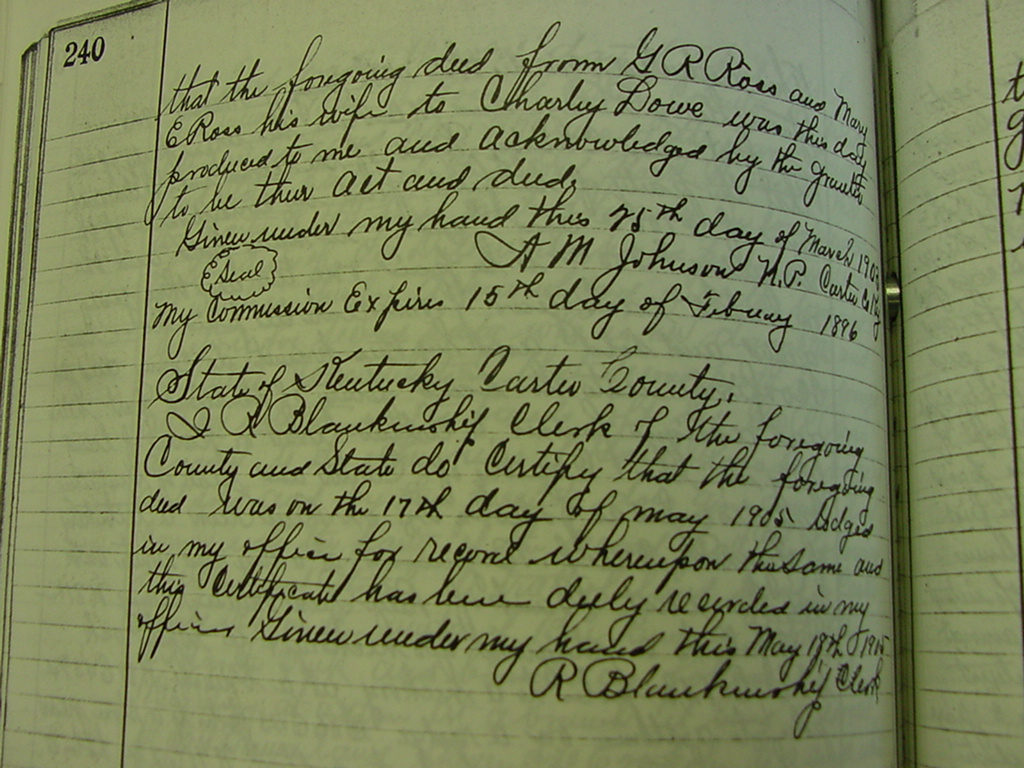 240
that the foregoing deed from G R Ross and Mary
E Ross his wife to Charley Lowe was this day
produced to me and acknowledged by the grantors
to be their act and deed.
Given under my hand this 25th day of March 190
Seal
A M Johnson N.P. Carter Co Ky
My Commission Expires 15th day of Febuay 1896
State of Kentucky Carter County.
I R Blankinship Clerk of the foregoing
County and State do Certify that the foregoing
deed was on the 17th day of may 1905 lodged
in my office for record whereupon the same and
this Certificate has been duly recorded in my
office Given under my hand this May 18th 1905
R Blankinship Clerk